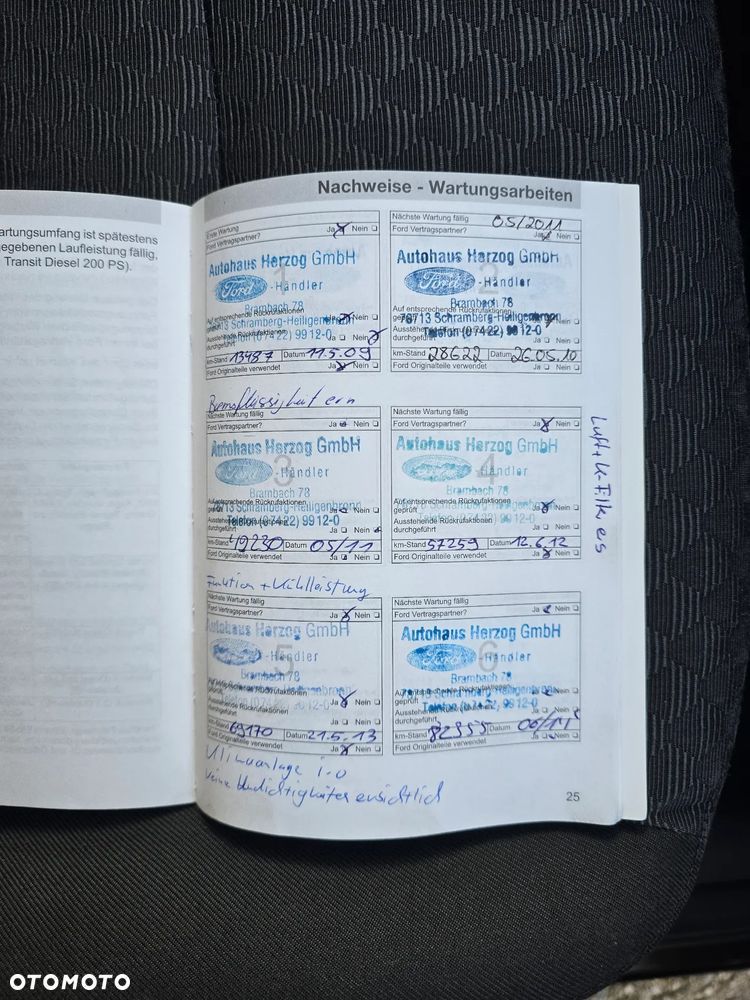 artungsumfang ist spätestens
egebenen Laufleistung fällig,
Transit Diesel 200 PS).
Nachweise - Wartungsarbeiten
Erste Wartung
Ford Vertragspartner? Ja Nein
Autohaus Herzog GmbH
1
Ford -Händler
Brambach 78
Auf entsprechende Rückrufaktionen
13 Schramberg-Heiligenbronn
Ausstehende Rückrufaktionen
durchgeführt
99 12-0
Ja Nein
km-Stand 13437 Datum 11.5.09
Ford Originalteile verwendet Ja Nein
Nächste Wartung fällig 05/2011
Ford Vertragspartner? Ja Nein
Autohaus Herzog GmbH
2
Ford -Händler
Brambach 78
Auf entsprechende Rückrufaktionen
78713 Schramberg-Heiligenbronn
Telefon (07422) 99 12-0
durchgeführt Ja Nein
km-Stand 28622 Datum 26.05.10
Ford Originalteile verwendet Ja Nein
Bremsflüssigkeit ern
Nächste Wartung fällig
Ford Vertragspartner? Ja Nein
Autohaus Herzog GmbH
3
-Händler
Brambach 78
Auf entsprechende Rückrufaktionen
geprüft
13 Schramberg-Heiligenbronn
Telefon (07422) 99 12-0
durchgeführt Ja Nein
km-Stand 40230 Datum 05/11
Ford Originalteile verwendet Ja Nein
Nächste Wartung fällig
Ford Vertragspartner? Ja Nein
Autohaus Herzog GmbH
4
-Händler
Brambach 78
Auf entsprechende Rückrufaktionen
geprüft Ja Nein
Ausstehende Rückrufaktionen
durchgeführt Ja Nein
km-Stand 57259 Datum 12.6.12
Ford Originalteile verwendet Ja Nein
Luft +
Funktion + Kühlleistung
Nächste Wartung fällig
Ford Vertragspartner? Ja Nein
Autohaus Herzog GmbH
5
-Händler
Brambach 78
geprüft
Ausstehende Rückrufaktionen
durchgeführt Ja Nein
km-Stand 69170 Datum 21.5.13
Ford Originalteile verwendet Ja Nein
Nächste Wartung fällig
Ford Vertragspartner? Ja Nein
Autohaus Herzog GmbH
6
Ford -Händler
Brambach 78
geprüft
Telefon (07422) 99 12-0
durchgeführt
km-Stand 82355 Datum
Ford Originalteile verwendet Ja Nein
Klimaanlage i.o
keine Undichtigkeiten ersichtlich
25
OTOMOTO